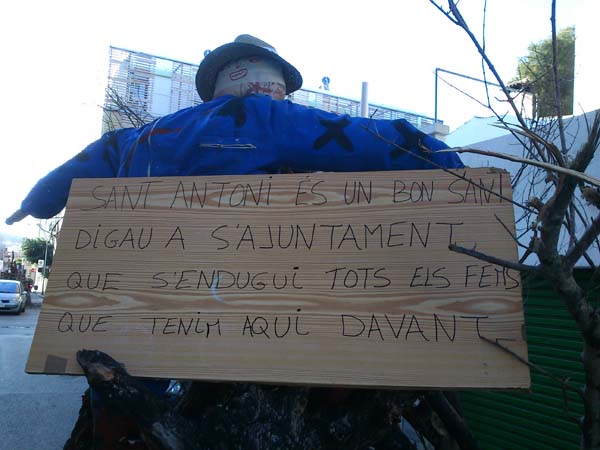 SANT ANTONI ÉS UN BON SANT
DIGAU A S'AJUNTAMENT
QUE S'ENDUGUI TOTS ELS FEMS
QUE TENIM AQUI DAVANT